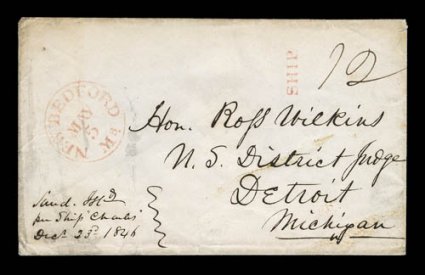 SHIP
12
NEW-BEDFORD Ms.
MAY
5
Hon. Ross Wilkins
U. S. District Judge
Detroit
Michigan
Sand. Isld
per Ship "Charles"
Dect. 23d. 1846